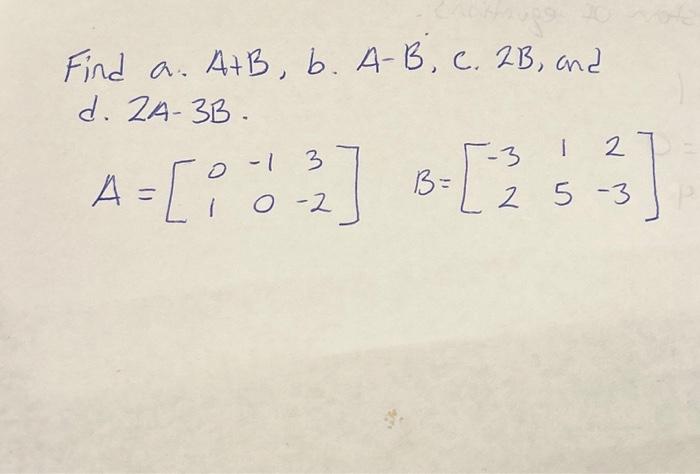 Find a. A+B, b. A-B, c. 2B, and
d. 2A-3B.
A = [ 0 -1 3 ] B = [ -3 1 2 ]
1 0 -2 2 5 -3